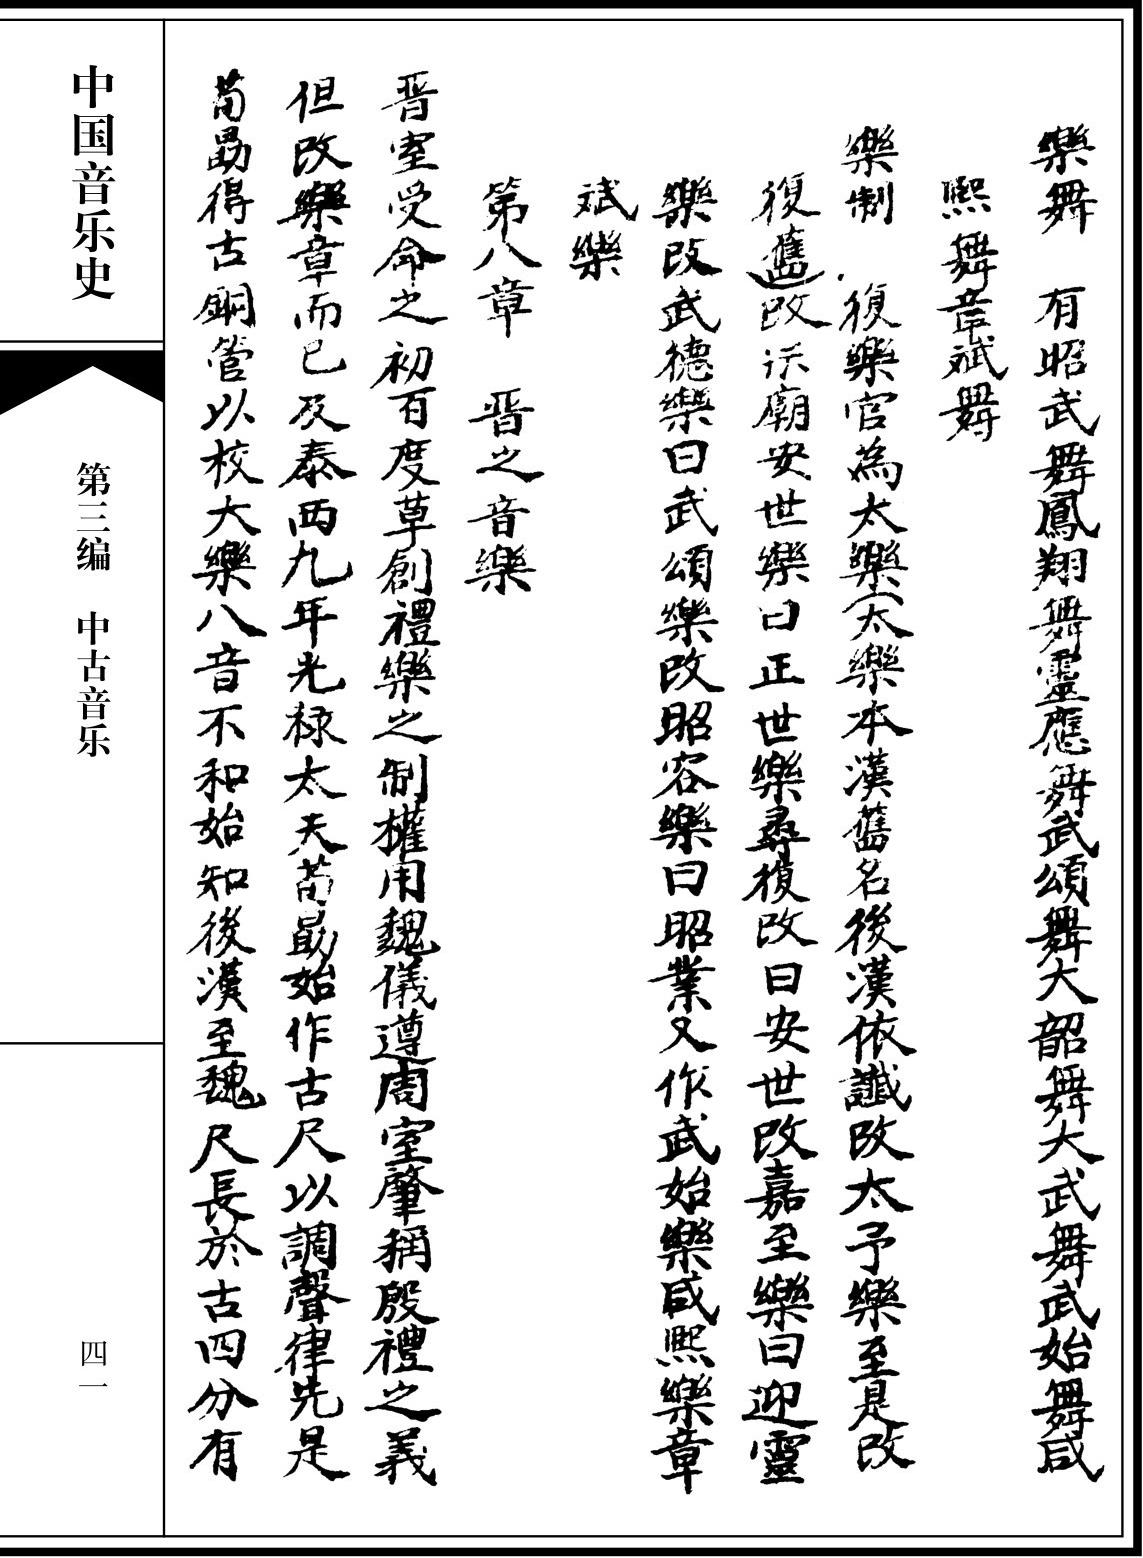 樂舞　有昭武舞鳳翔舞靈應舞武頌舞大韶舞大武舞武始舞咸
熙舞章斌舞
樂制　復樂官為太樂（太樂本漢舊名後漢依讖改太予樂至是改
復舊）改汴廟安世樂曰正世樂尋復改曰安世改嘉至樂曰迎靈
樂改武德樂曰武頌樂改昭容樂曰昭業又作武始樂咸熙樂章
斌樂
第八章　晋之音樂
晋室受命之初百度草創禮樂之制權用魏儀遵周室肇稱殷禮之義
但改樂章而已及泰西九年光祿太夫荀勗始作古尺以調聲律先是
荀勗得古銅管以校大樂八音不和始知後漢至魏尺長於古四分有
中国音乐史
第三编　中古音乐
四一